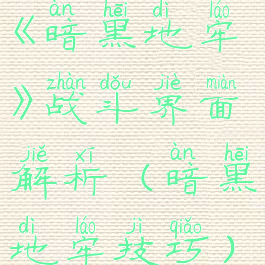 àn hēi dì láo
《暗黑地牢
zhàn dǒu jiè miàn
》战斗界面
jiě xī àn hēi
解析（暗黑
dì láo jì qiǎo
地牢技巧）